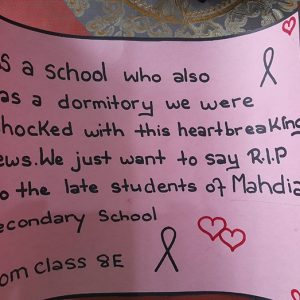 s a school who also
as a dormitory we were
hocked with this heartbreaking
ews. We just want to say R.I.P
o the late students of Mahdia
econdary School
om Class 8E